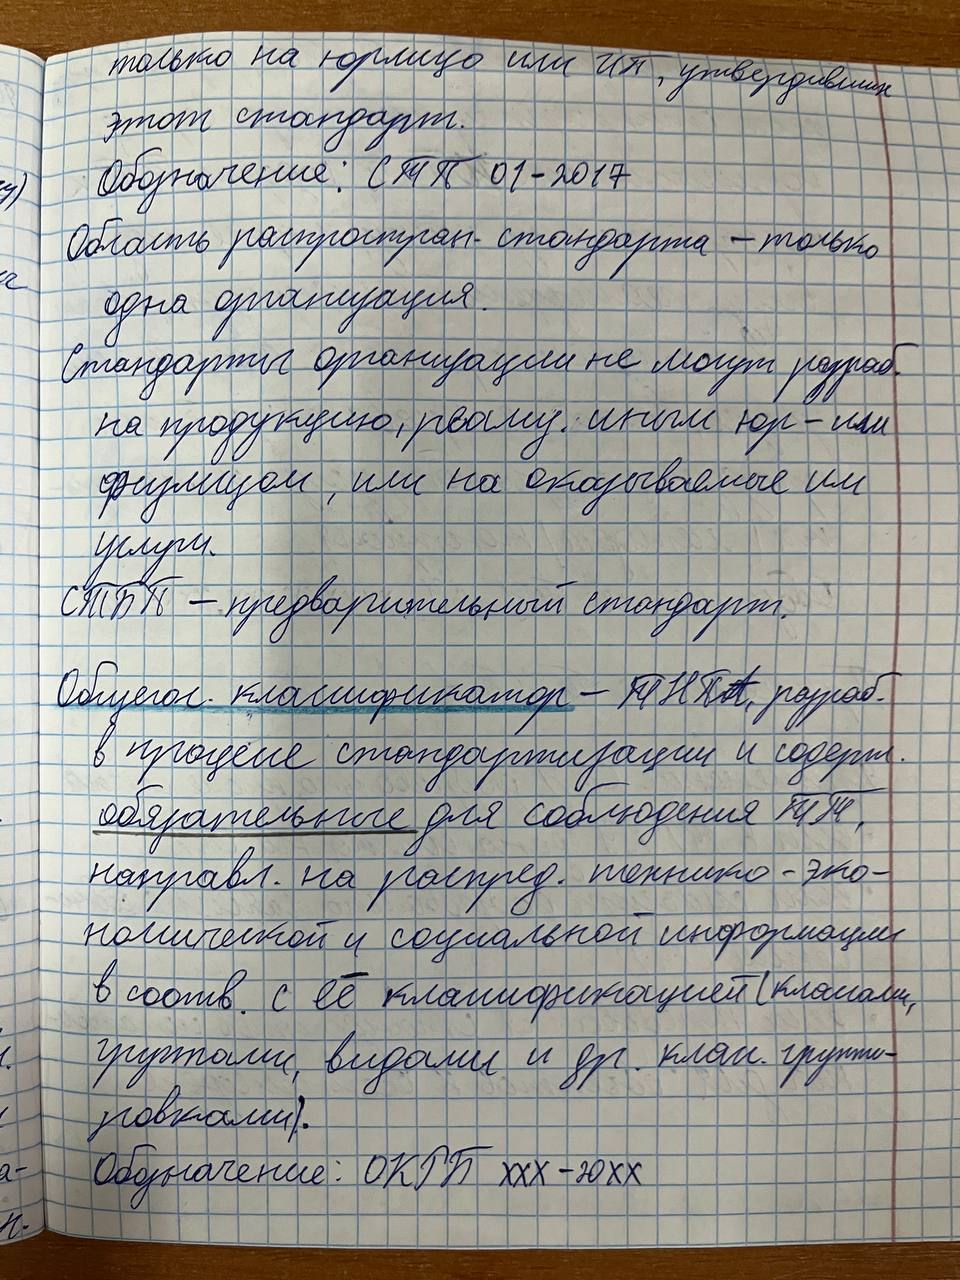 только на юрлицо или ИП, утвердивших
этот стандарт.
Обозначение: СТП 01-2017
Область распростран. стандарта – только
одна организация.
Стандарты организации не могут разраб.
на продукцию, реализ. иным юр- или
физлицом, или на оказываемые им
услуги.
СТБП – предварительный стандарт.
Общегос. классификатор – ТНПА, разраб.
в процессе стандартизации и содерж.
обязательные для соблюдения ТТ,
направл. на распред. технико-эко-
номической и социальной информации
в соотв. с её классификацией (классами,
группами, видами и др. класс. группи-
ровками).
Обозначение: ОКРБ ххх-20хх